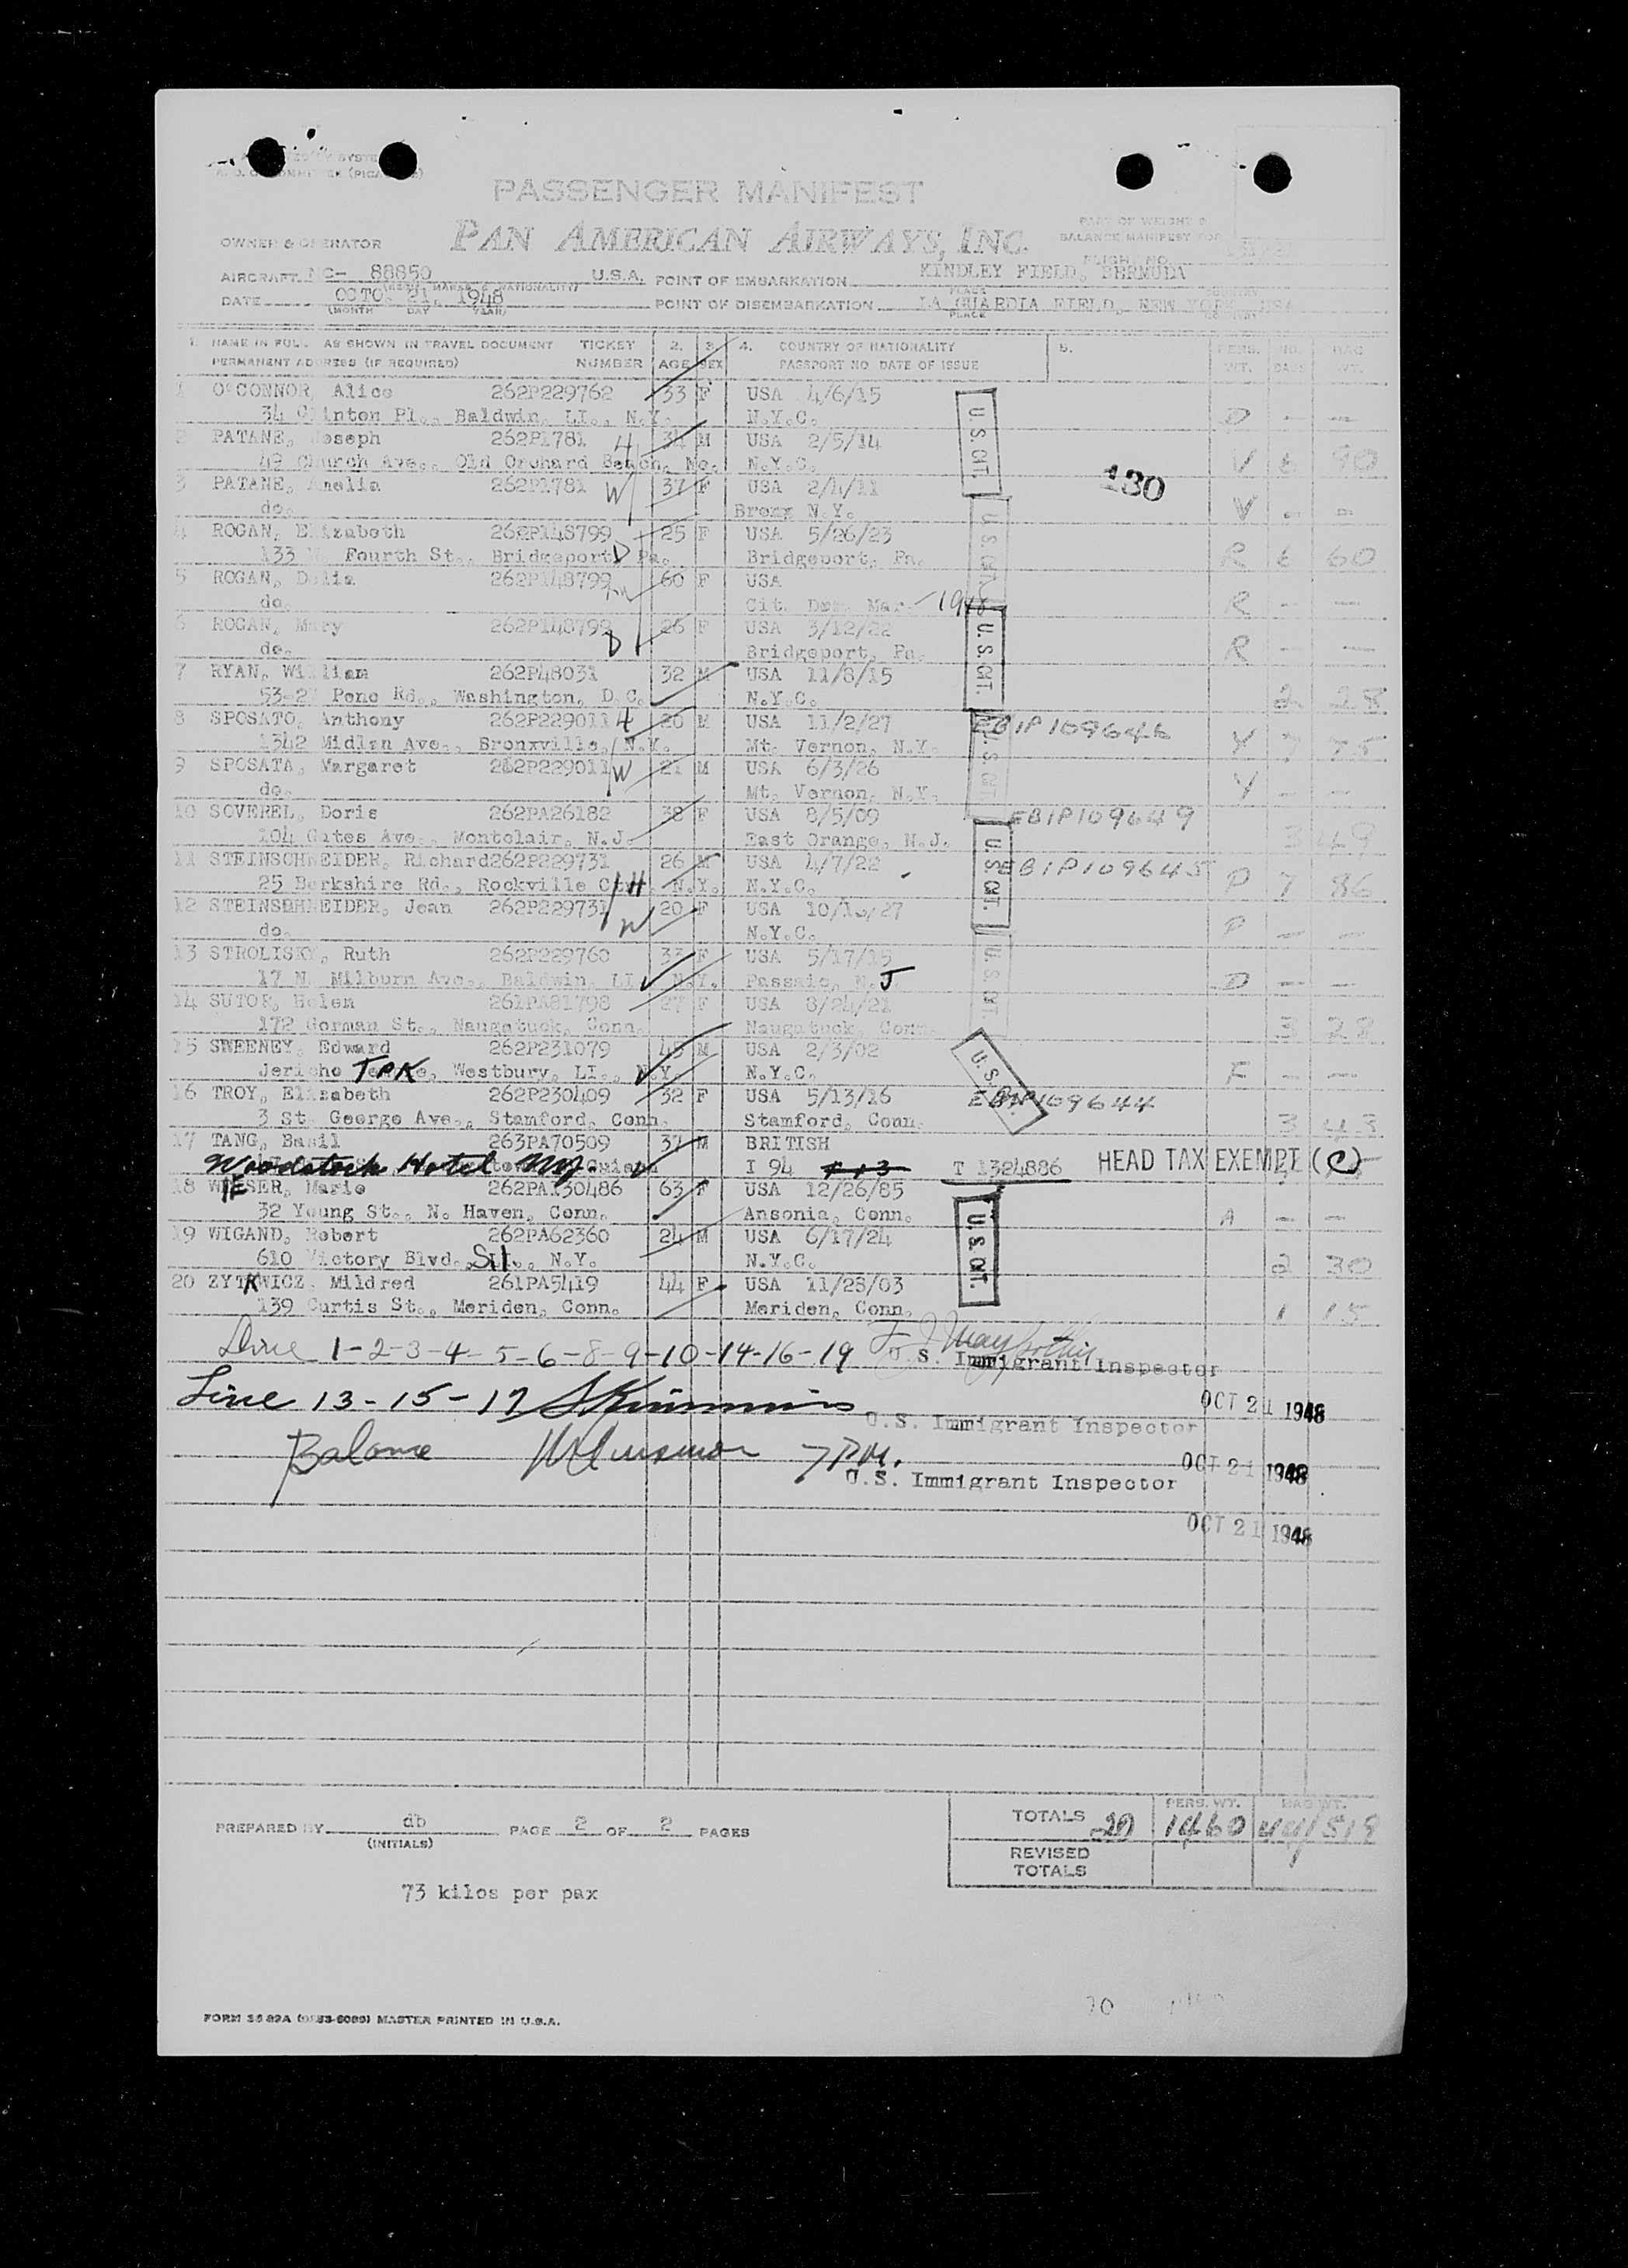 PASSENGER MANIFEST
PAN AMERICAN AIRWAYS, INC.
OWNER & OPERATOR
PART OF WEIGHT &
BALANCE MANIFEST FOR
FLIGHT NO.
AIRCRAFT NC- 88850 U.S.A. POINT OF EMBARKATION KINDLEY FIELD, BERMUDA
DATE OCTO. 21, 1948 POINT OF DISEMBARKATION LA GUARDIA FIELD, NEW YORK, USA
(MONTH DAY YEAR) PLACE
1. NAME IN FULL AS SHOWN IN TRAVEL DOCUMENT TICKET 2. 3. 4. COUNTRY OF NATIONALITY 5. PERS. NO. BAG
PERMANENT ADDRESS (IF REQUIRED) NUMBER AGE SEX PASSPORT NO DATE OF ISSUE WT. BAGS WT.
1 O'CONNOR, Alice 262P229762 33 F USA 4/6/15
34 Clinton Pl., Baldwin, LI., N.Y. N.Y.C. D - -
U.S. CIT.
2 PATANE, Joseph 262P1781 H 34 M USA 2/5/14
49 Church Ave., Old Orchard Beach, Me. N.Y.C. V 6 90
130
3 PATANE, Amelia 262P1781 W 37 F USA 2/4/11
do. Bronx N.Y. V - -
4 ROGAN, Elizabeth 262P148799 25 F USA 5/26/23
133 W. Fourth St., Bridgeport, D Pa. Bridgeport, Pa. R 6 60
U.S. CIT.
5 ROGAN, Delia 262P148799 60 F USA
do. Cit. Des. Mar. R - -
6 ROGAN, Mary 262P148799 D 26 F USA 3/12/22
do. Bridgeport, Pa. R - -
U.S. CIT.
7 RYAN, William 262P48031 32 M USA 11/8/15
53-27 Pone Rd., Washington, D.C. N.Y.C. 2 28
8 SPOSATO, Anthony 262P229011 H 20 M USA 11/2/27 EBIP109646
1342 Midlan Ave., Bronxville, N.Y. Mt. Vernon, N.Y. Y 7 75
U.S. CIT.
9 SPOSATA, Margaret 262P229011 W 21 M USA 6/3/26
do. Mt. Vernon, N.Y. Y - -
10 SOVEREL, Doris 262PA26182 38 F USA 8/5/09 EBIP109649
104 Gates Ave., Montclair, N.J. East Orange, N.J. 3 49
U.S. CIT.
11 STEINSCHNEIDER, Richard 262P229731 26 M USA 4/7/22 EBIP109645
25 Berkshire Rd., Rockville Ctr. H N.Y. N.Y.C. P 7 86
12 STEINSCHNEIDER, Jean 262P229731 W 20 F USA 10/16/27
do. N.Y.C. P - -
13 STROLISKY, Ruth 262P229760 33 F USA 5/17/15
17 N. Milburn Ave., Baldwin, LI. N.Y. Passaic, N.J D - -
U.S. CIT.
14 SUTOR, Helen 261PA81798 27 F USA 8/24/21
172 Gorman St., Naugatuck, Conn. Naugatuck, Conn. 3 28
15 SWEENEY, Edward 262P231079 45 M USA 2/3/02
Jericho TPK, Westbury, LI., N.Y. N.Y.C. F - -
U.S.
16 TROY, Elizabeth 262P230409 32 F USA 5/13/16 EBIP109644
3 St. George Ave., Stamford, Conn. Stamford, Conn. 3 43
17 TANG, Basil 263PA70509 37 M BRITISH
Woodstock Hotel NY. I 94 T 1324886 HEAD TAX EXEMPT (C)
18 WIESER, Marie 262PA130486 63 F USA 12/26/85
32 Young St., N. Haven, Conn. Ansonia, Conn. A - -
U.S. CIT.
19 WIGAND, Robert 262PA62360 24 M USA 6/17/24
610 Victory Blvd., S.I., N.Y. N.Y.C. 2 30
20 ZYTKWICZ, Mildred 261PA5419 44 F USA 11/28/03
139 Curtis St., Meriden, Conn. Meriden, Conn. 1 15
Line 1-2-3-4-5-6-8-9-10-14-16-19
U.S. Immigrant Inspector
OCT 21 1948
Line 13-15-17
U.S. Immigrant Inspector
OCT 21 1948
Balance 7PM.
U.S. Immigrant Inspector
OCT 21 1948
PREPARED BY db PAGE 2 OF 2 PAGES
(INITIALS)
PERS. WT. BAG WT.
TOTALS 20 1460 44/518
REVISED
TOTALS
73 kilos per pax
FORM 3582A MASTER PRINTED IN U.S.A.